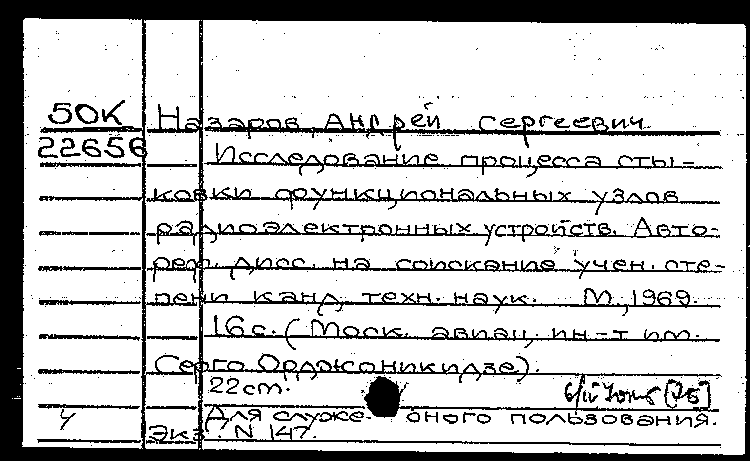 50К Назаров, Андрей Сергеевич
22656 Исследование процесса сты-
ковки функциональных узлов
радиоэлектронных устройств. Авто-
реф. дисс. на соискание учен. сте-
пени канд. техн. наук. М., 1969.
16 с. (Моск. авиац. ин-т им.
Серго Орджоникидзе).
22 cm. [75]
Для служе оного пользования.
Экз. N 147.